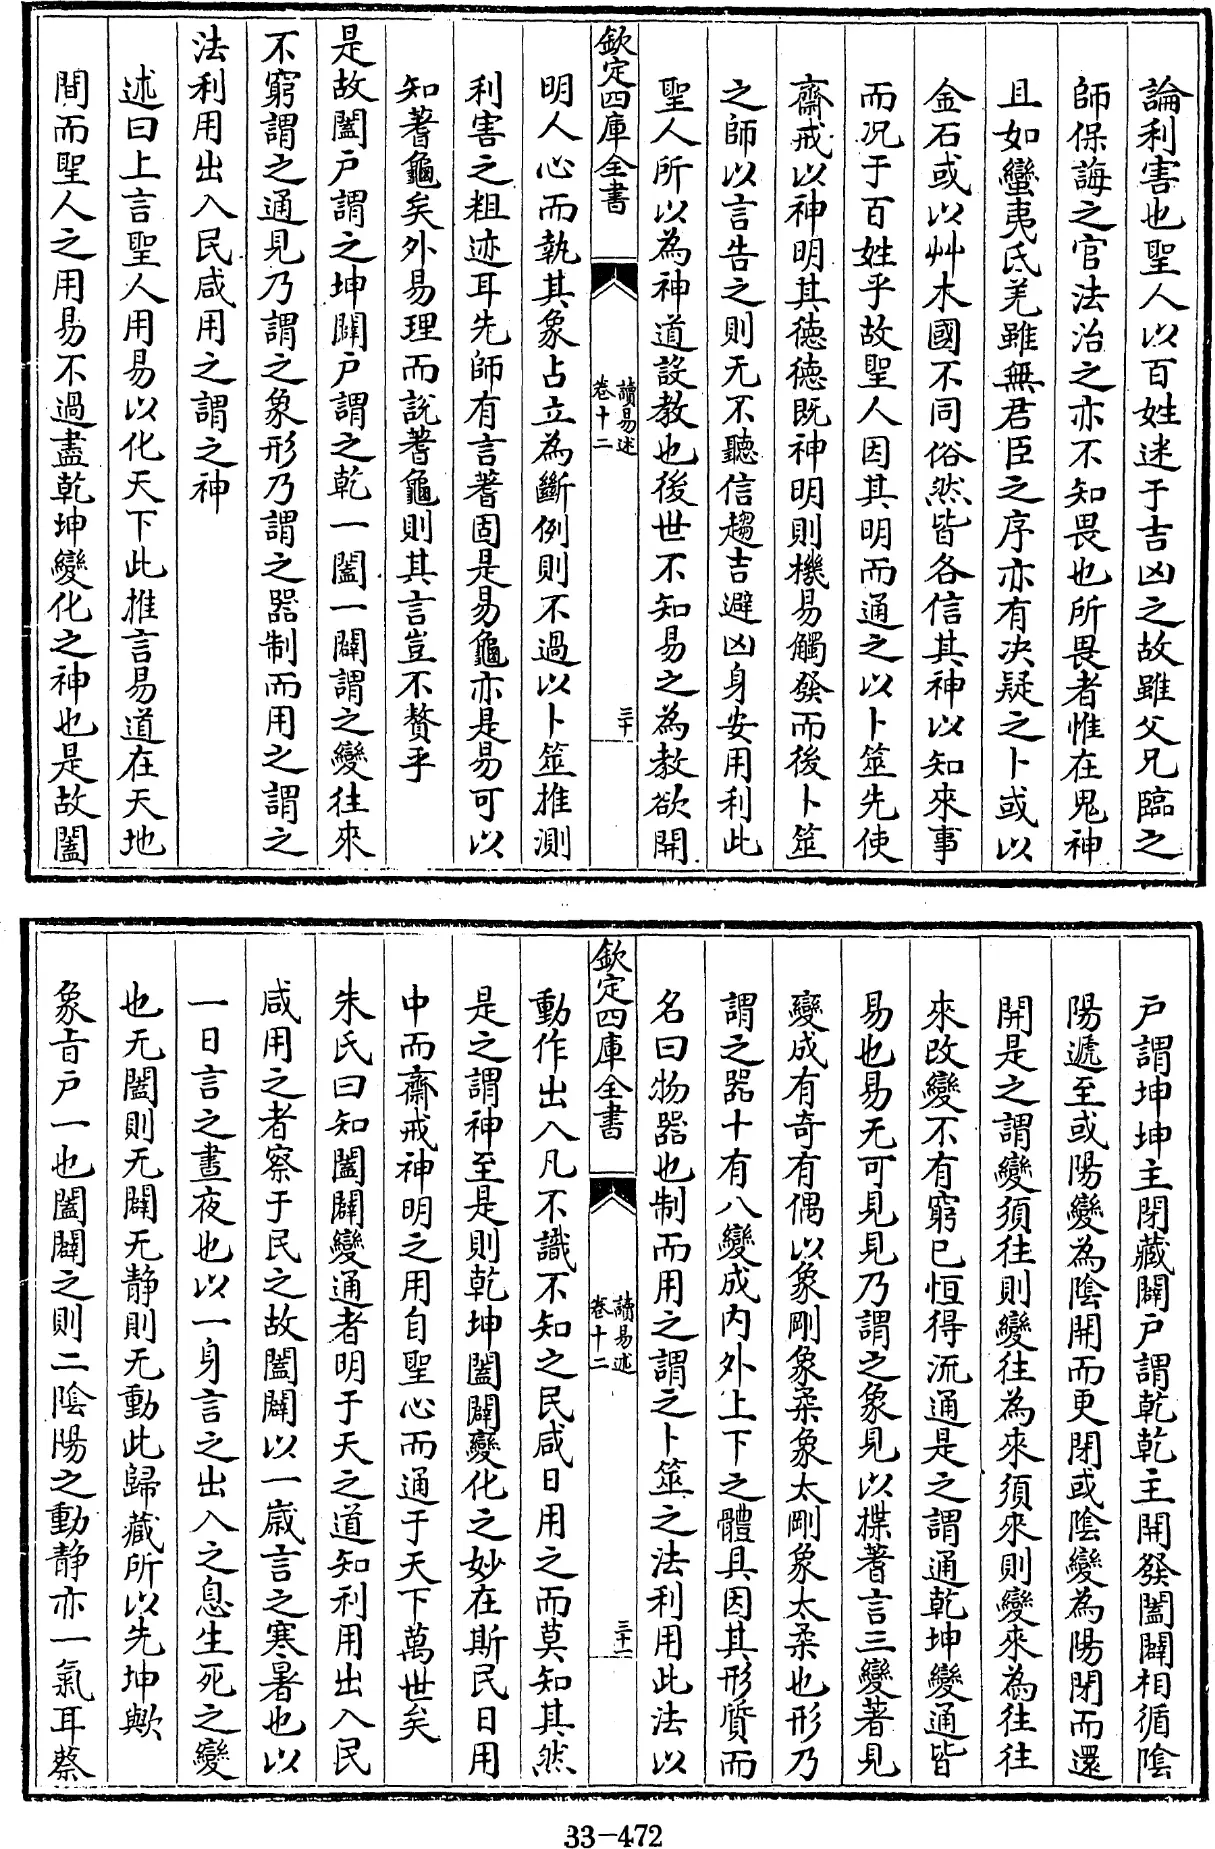 論利害也聖人以百姓迷于吉凶之故雖父兄臨之
師保誨之官法治之亦不知畏也所畏者惟在鬼神
且如蠻夷氐羌雖無君臣之序亦有决疑之卜或以
金石或以艸木國不同俗然皆各信其神以知來事
而况于百姓乎故聖人因其明而通之以卜筮先使
齋戒以神明其徳徳既神明則機易觸發而後卜筮
之師以言告之則无不聽信趨吉避凶身安用利此
聖人所以為神道設教也後世不知易之為教欲開
欽定四庫全書
讀易述
卷十二
三十
明人心而執其象占立為斷例則不過以卜筮推測
利害之粗迹耳先師有言蓍固是易龜亦是易可以
知蓍龜矣外易理而説蓍龜則其言豈不贅乎
是故闔户謂之坤闢户謂之乾一闔一闢謂之變往來
不窮謂之通見乃謂之象形乃謂之器制而用之謂之
法利用出入民咸用之謂之神
述曰上言聖人用易以化天下此推言易道在天地
間而聖人之用易不過盡乾坤變化之神也是故闔
户謂坤坤主閉藏闢户謂乾乾主開發闔闢相循陰
陽遞至或陽變為陰開而更閉或陰變為陽閉而還
開是之謂變須往則變往為來須來則變來為往往
來改變不有窮已恒得流通是之謂通乾坤變通皆
易也易无可見見乃謂之象見以揲蓍言三變著見
變成有奇有偶以象剛象柔象太剛象太柔也形乃
謂之器十有八變成内外上下之體具因其形質而
名曰物器也制而用之謂之卜筮之法利用此法以
欽定四庫全書
讀易述
卷十二
三十一
動作出入凡不識不知之民咸日用之而莫知其然
是之謂神至是則乾坤闔闢變化之妙在斯民日用
中而齋戒神明之用自聖心而通于天下萬世矣
朱氏曰知闔闢變通者明于天之道知利用出入民
咸用之者察于民之故闔闢以一歳言之寒暑也以
一日言之晝夜也以一身言之出入之息生死之變
也无闔則无闢无静則无動此歸藏所以先坤歟
象旨户一也闔闢之則二陰陽之動静亦一氣耳蔡
33-472